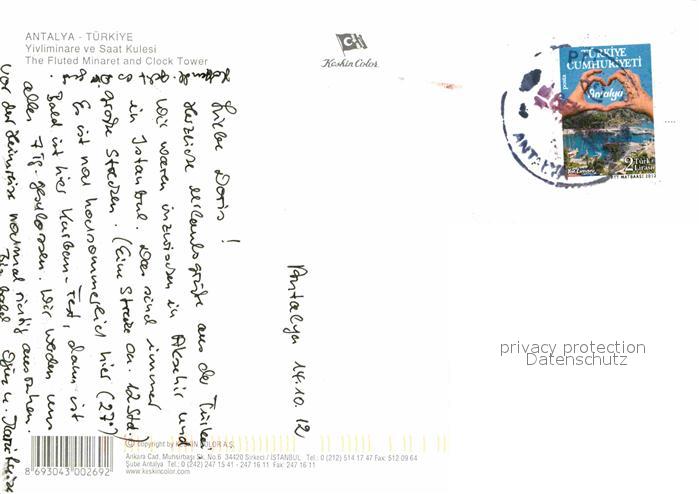 ANTALYA - TÜRKİYE
Yivliminare ve Saat Kulesi
The Fluted Minaret and Clock Tower
Keskin Color
TÜRKİYE
CUMHURİYETİ
posta
Antalya
2 Türk Lirası
PTT MATBAASI 2012
ANTALYA
Antalya 14.10.12
Liebe Doris!
Herzliche Urlaubsgrüße aus der Türkei.
Wir waren inzwischen in Akşehir und
in Istanbul. Das sind immer
große Strecken. (Eine Strecke ca. 12 Std.)
Es ist noch hochsommerlich hier (27°)
Bald ist hier Kurban-Fest, dann ist
alles geschlossen. Wir werden uns
vor der Heimreise nochmal richtig ausruhen.
Bis bald
privacy protection
Datenschutz
8 693043 002692
© copyright by KESKİN COLOR A.Ş.
Ankara Cad. Muhsirbaşı Sk. No.6 34420 Sirkeci / İSTANBUL Tel.: 0 (212) 514 17 47 Fax: 512 09 64
Şube Antalya Tel.: 0 (242) 247 15 41 - 247 16 11 Fax: 247 16 11
www.keskincolor.com